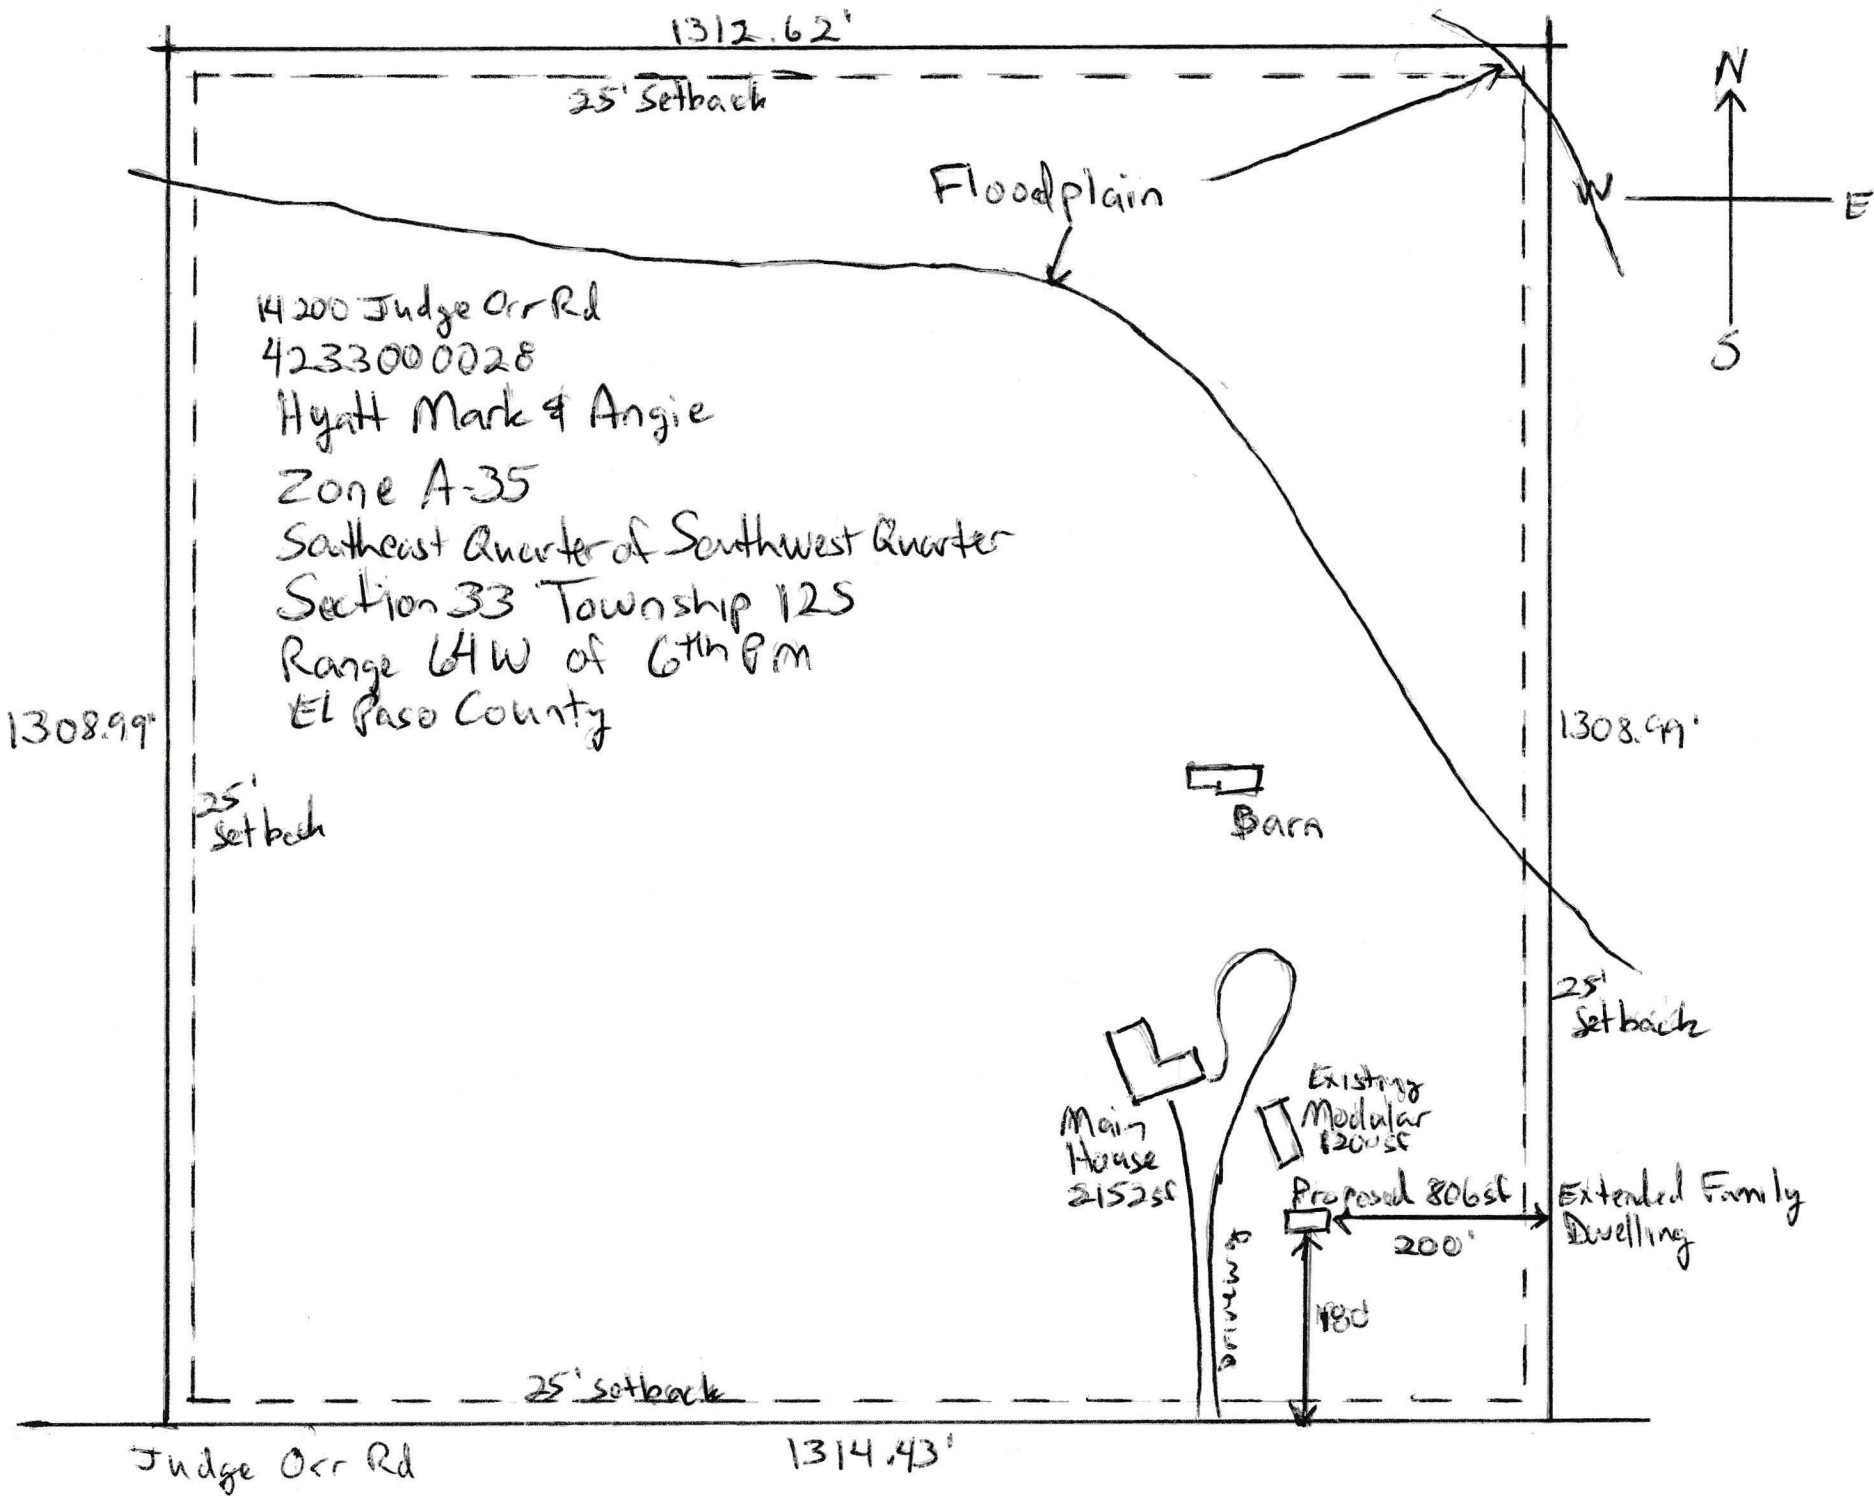 1312.62'
25' Setback
N
W
E
S
Floodplain
14200 Judge Orr Rd
4233000028
Hyatt Mark & Angie
Zone A-35
Southeast Quarter of Southwest Quarter
Section 33 Township 12S
Range 64W of 6th PM
El Paso County
1308.99'
1308.99'
25'
Setback
Barn
25'
Setback
Existing
Modular
1200sf
Main
House
2152sf
Proposed 806sf
Extended Family
Dwelling
200'
180'
Driveway
25' setback
Judge Orr Rd
1314.43'